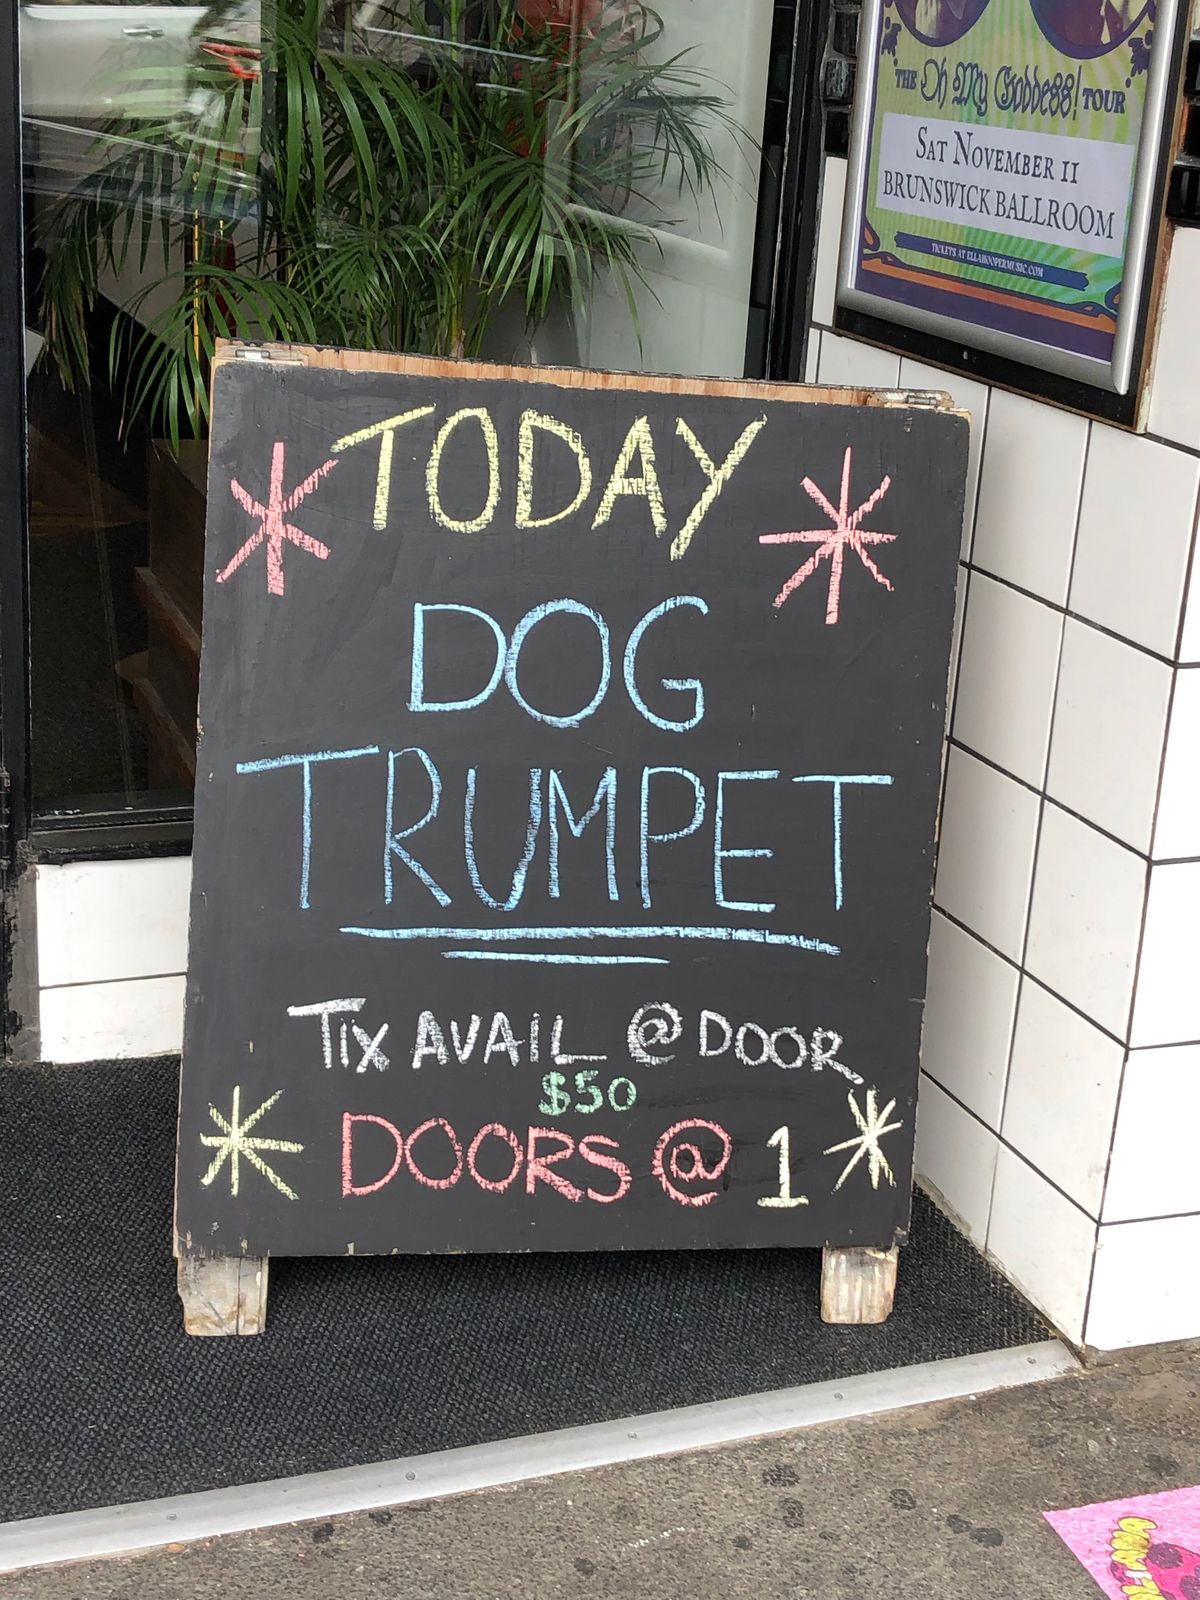 TODAY
DOG
TRUMPET
TIX AVAIL @ DOOR
$50
DOORS @ 1
THE Oh My Goddess! TOUR
SAT NOVEMBER 11
BRUNSWICK BALLROOM
TICKETS AT ELLAHOOPERMUSIC.COM